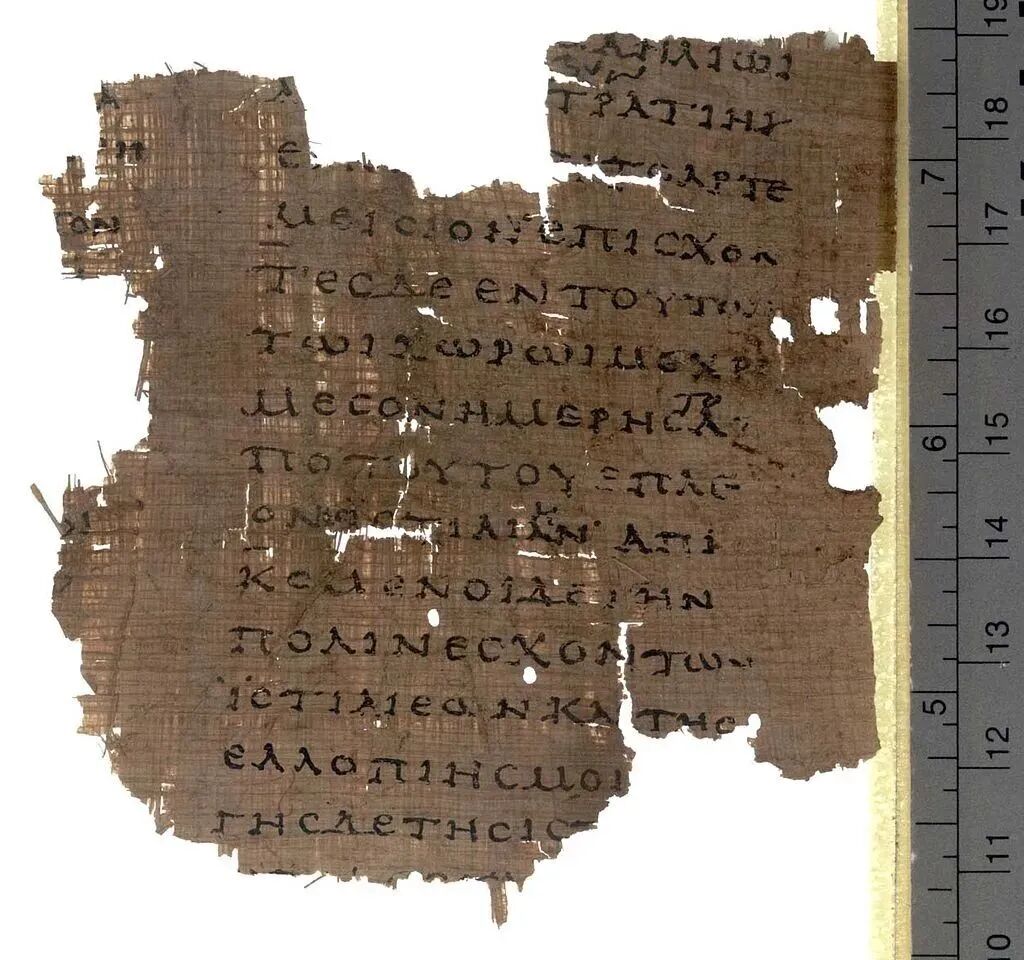 ΑΗΛΙΩΙ
ΤΡΑΤΙΗΥ
ΤΟΑΡΤΕ
ΤΟΝ
ΜΕΙϹΙΟΝΕΠΙϹΧΟΝ
ΤΕϹΔΕΕΝΤΟΥΤΩΙ
ΤΩΙΧΩΡΩΙΜΕΧΡΙ
ΜΕϹΟΝΗΜΕΡΗϹΑ
ΠΟΤΟΥΤΟΥΕΠΛΕ
ΟΝΕϹΙϹΤΙΑΙΗΝ ΑΠΙ
ΚΟΜΕΝΟΙΔΕΤΗΝ
ΠΟΛΙΝΕϹΧΟΝΤΩΝ
ΙϹΤΙΑΙΕΩΝΚΑΙΤΗϹ
ΕΛΛΟΠΙΗϹΜΟΙ
ΓΗϹΔΕΤΗϹΙϹΤ